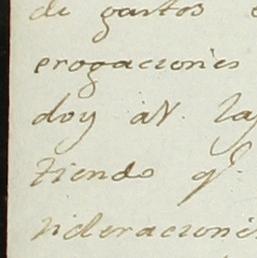 de gastos
erogaciones
doy à V. las
tiendo q.^e
sideracione